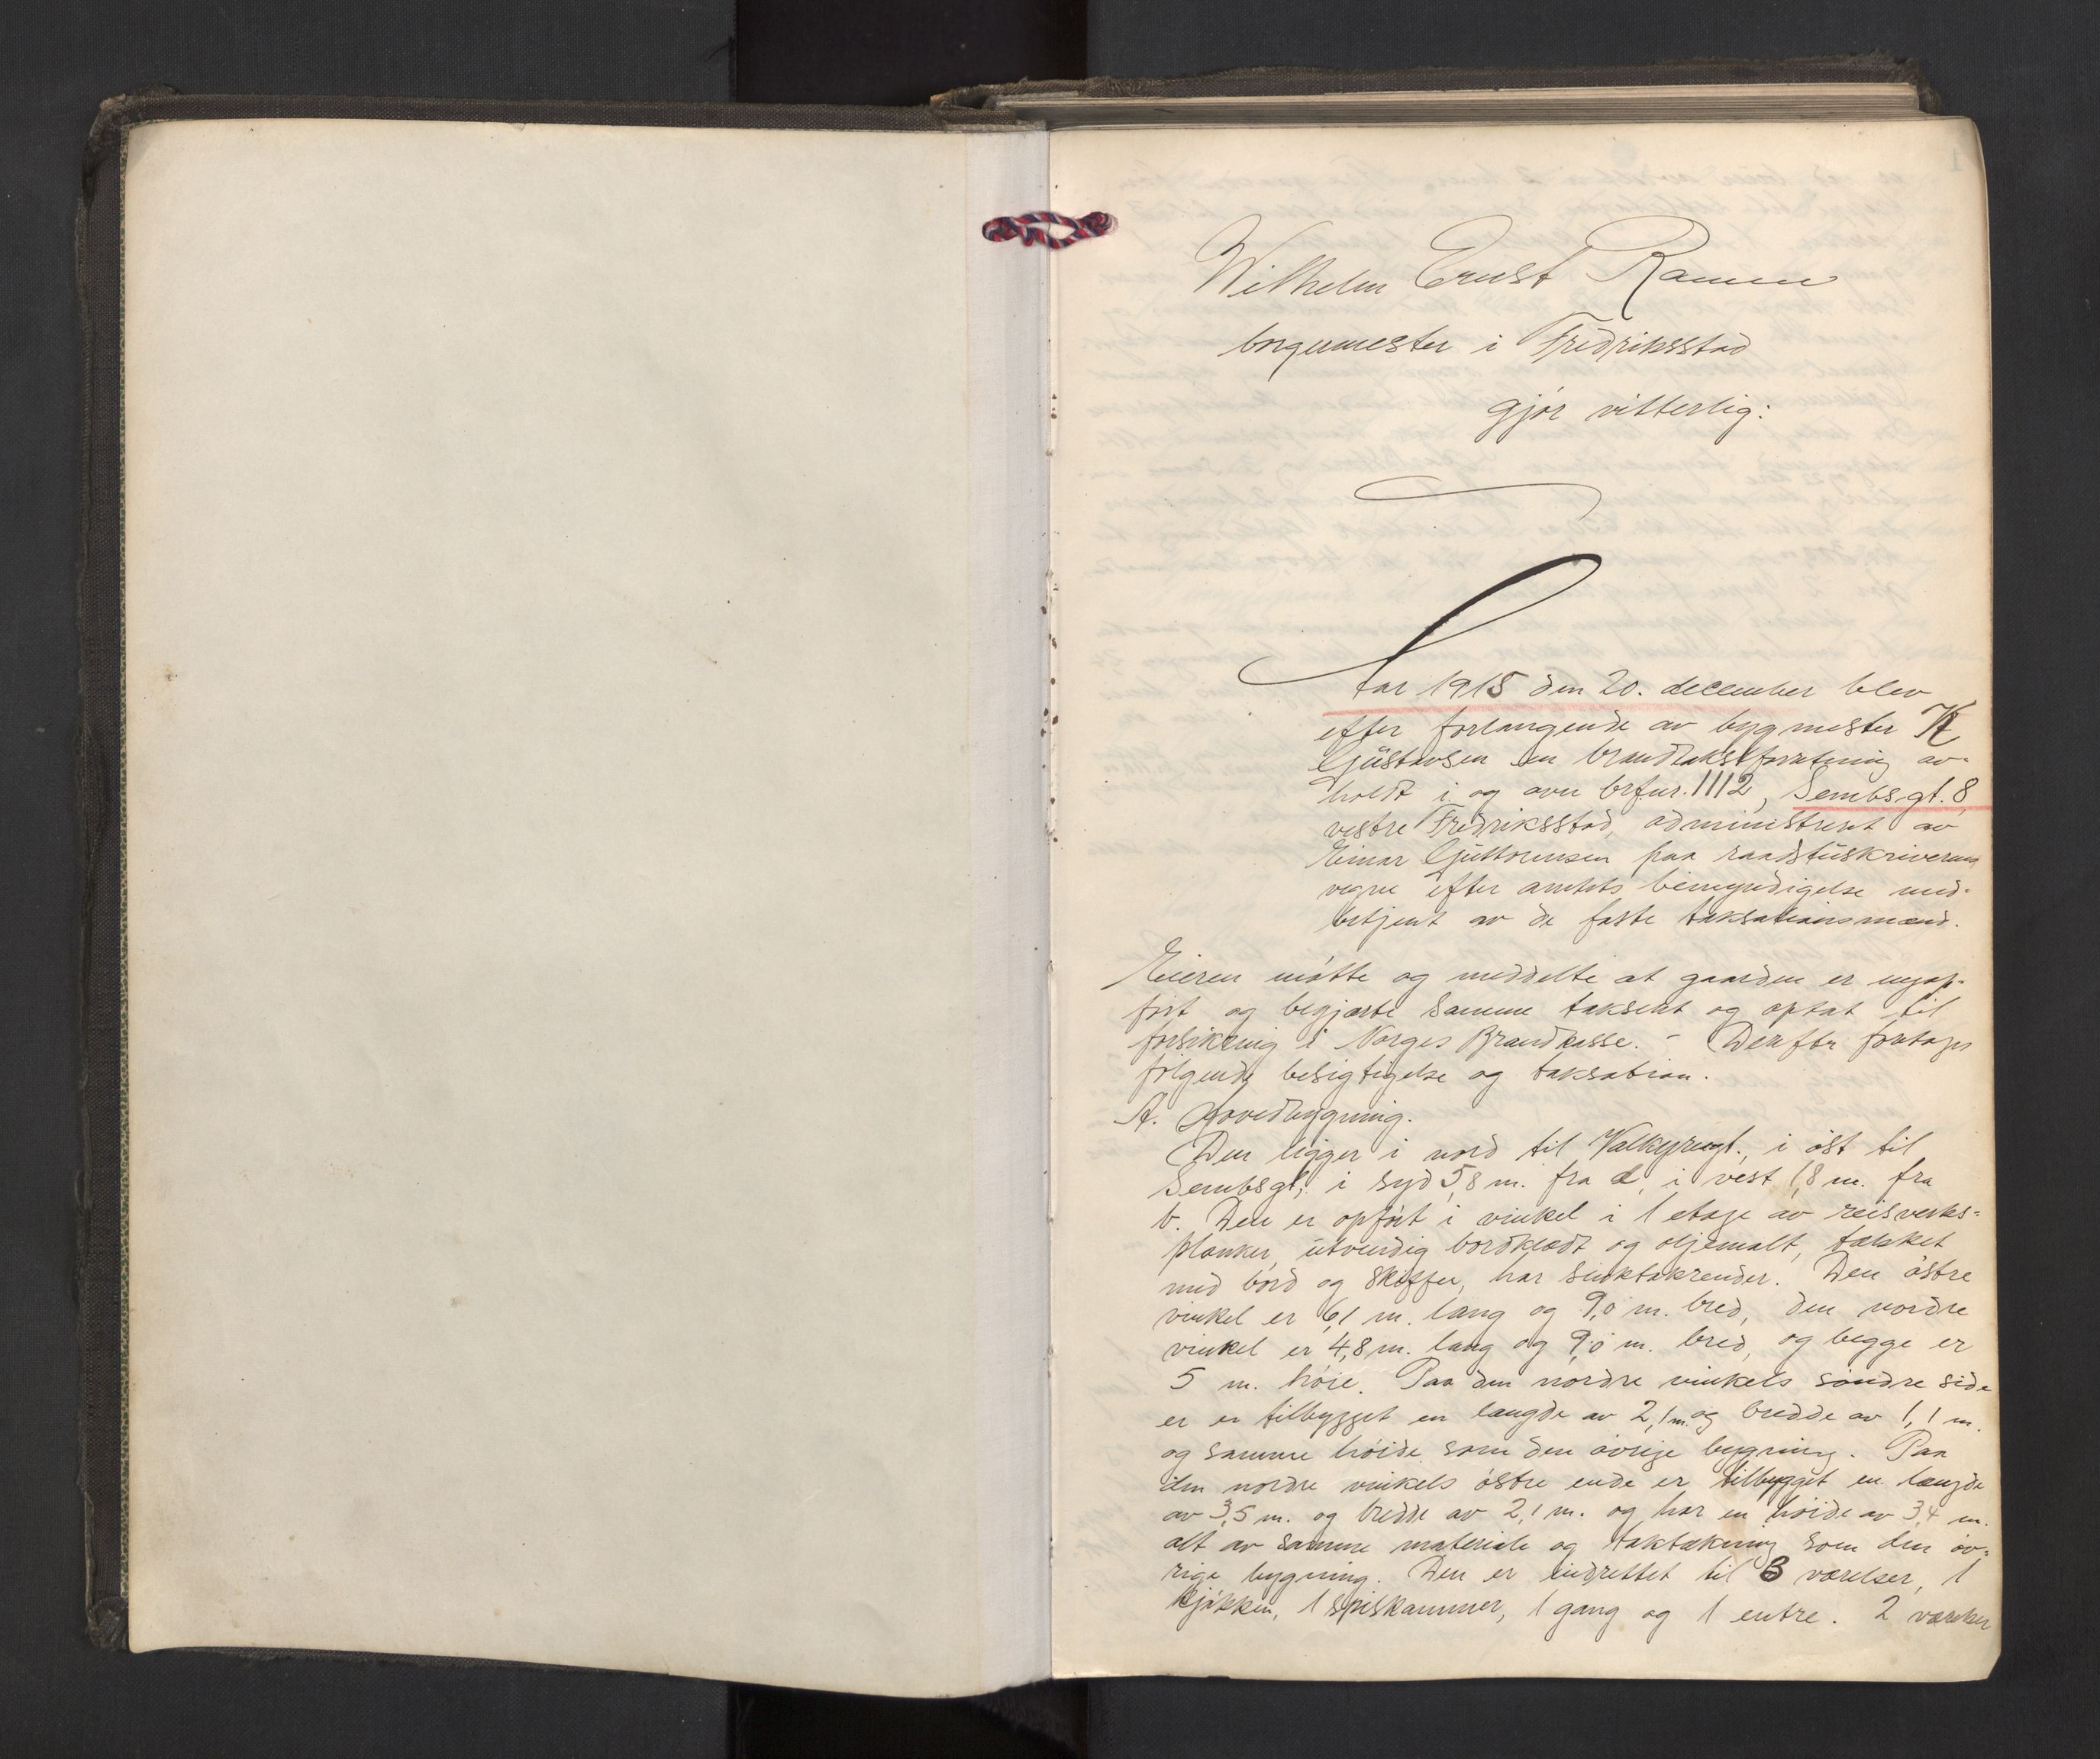 1
Wilhelm Ernst Ramm
borgermester i Fredriksstad
gjör vitterlig:
Aar 1915 den 20. december blev
efter forlangende av bygmester K
Gustavsen en brandtakstforretning av-
holdt i og over brfnr. 1112, Sembsgt. 8
vestre Fredriksstad, administrert av
Einar Guttormsen paa raadstuskriverens
vegne efter amtets bemyndigelse med-
betjent av de faste taksationsmænd.
Eieren mötte og meddelte at gaarden er nyop-
fört og begjærte samme taksert og optat til
forsikring i Norges Brandkasse. - Derefter foretoges
fölgende besigtigelse og taksation.
A. Hovedbygning.
Den ligger i nord til Valkyriegt., i öst til
Sembsgt., i syd 5,8 m. fra d, i vest 1,8 m. fra
b. Den er opfört i vinkel i 1 etage av reisverks-
planker, utvendig bordklædt og oljemalt, tækket
med bord og skiffer, har sinktakrender. Den östre
vinkel er 6,1 m. lang og 9,0 m. bred, den nordre
vinkel er 4,8 m. lang og 9,0 m. bred, og begge er
5 m. höie. Paa den nordre vinkels söndre side
er er tilbygget en længde av 2,1 m. og bredde av 1,1 m.
og samme höide som den övrige bygning. Paa
den nordre vinkels östre ende er tilbygget en længde
av 3,5 m. og bredde av 2,1 m. og har en höide av 3,4 m.
alt av samme materiale og taktækning som den öv-
rige bygning. Den er indrettet til 3 værelser, 1
kjökken, 1 spiskammer, 1 gang og 1 entre. 2 værelser